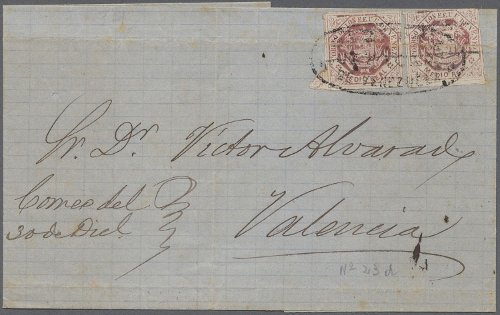 MEDIO REAL
Sr. Dr. Victor Alvarado
Correo del
30 de Dicl.
Valencia
Nº 23 d